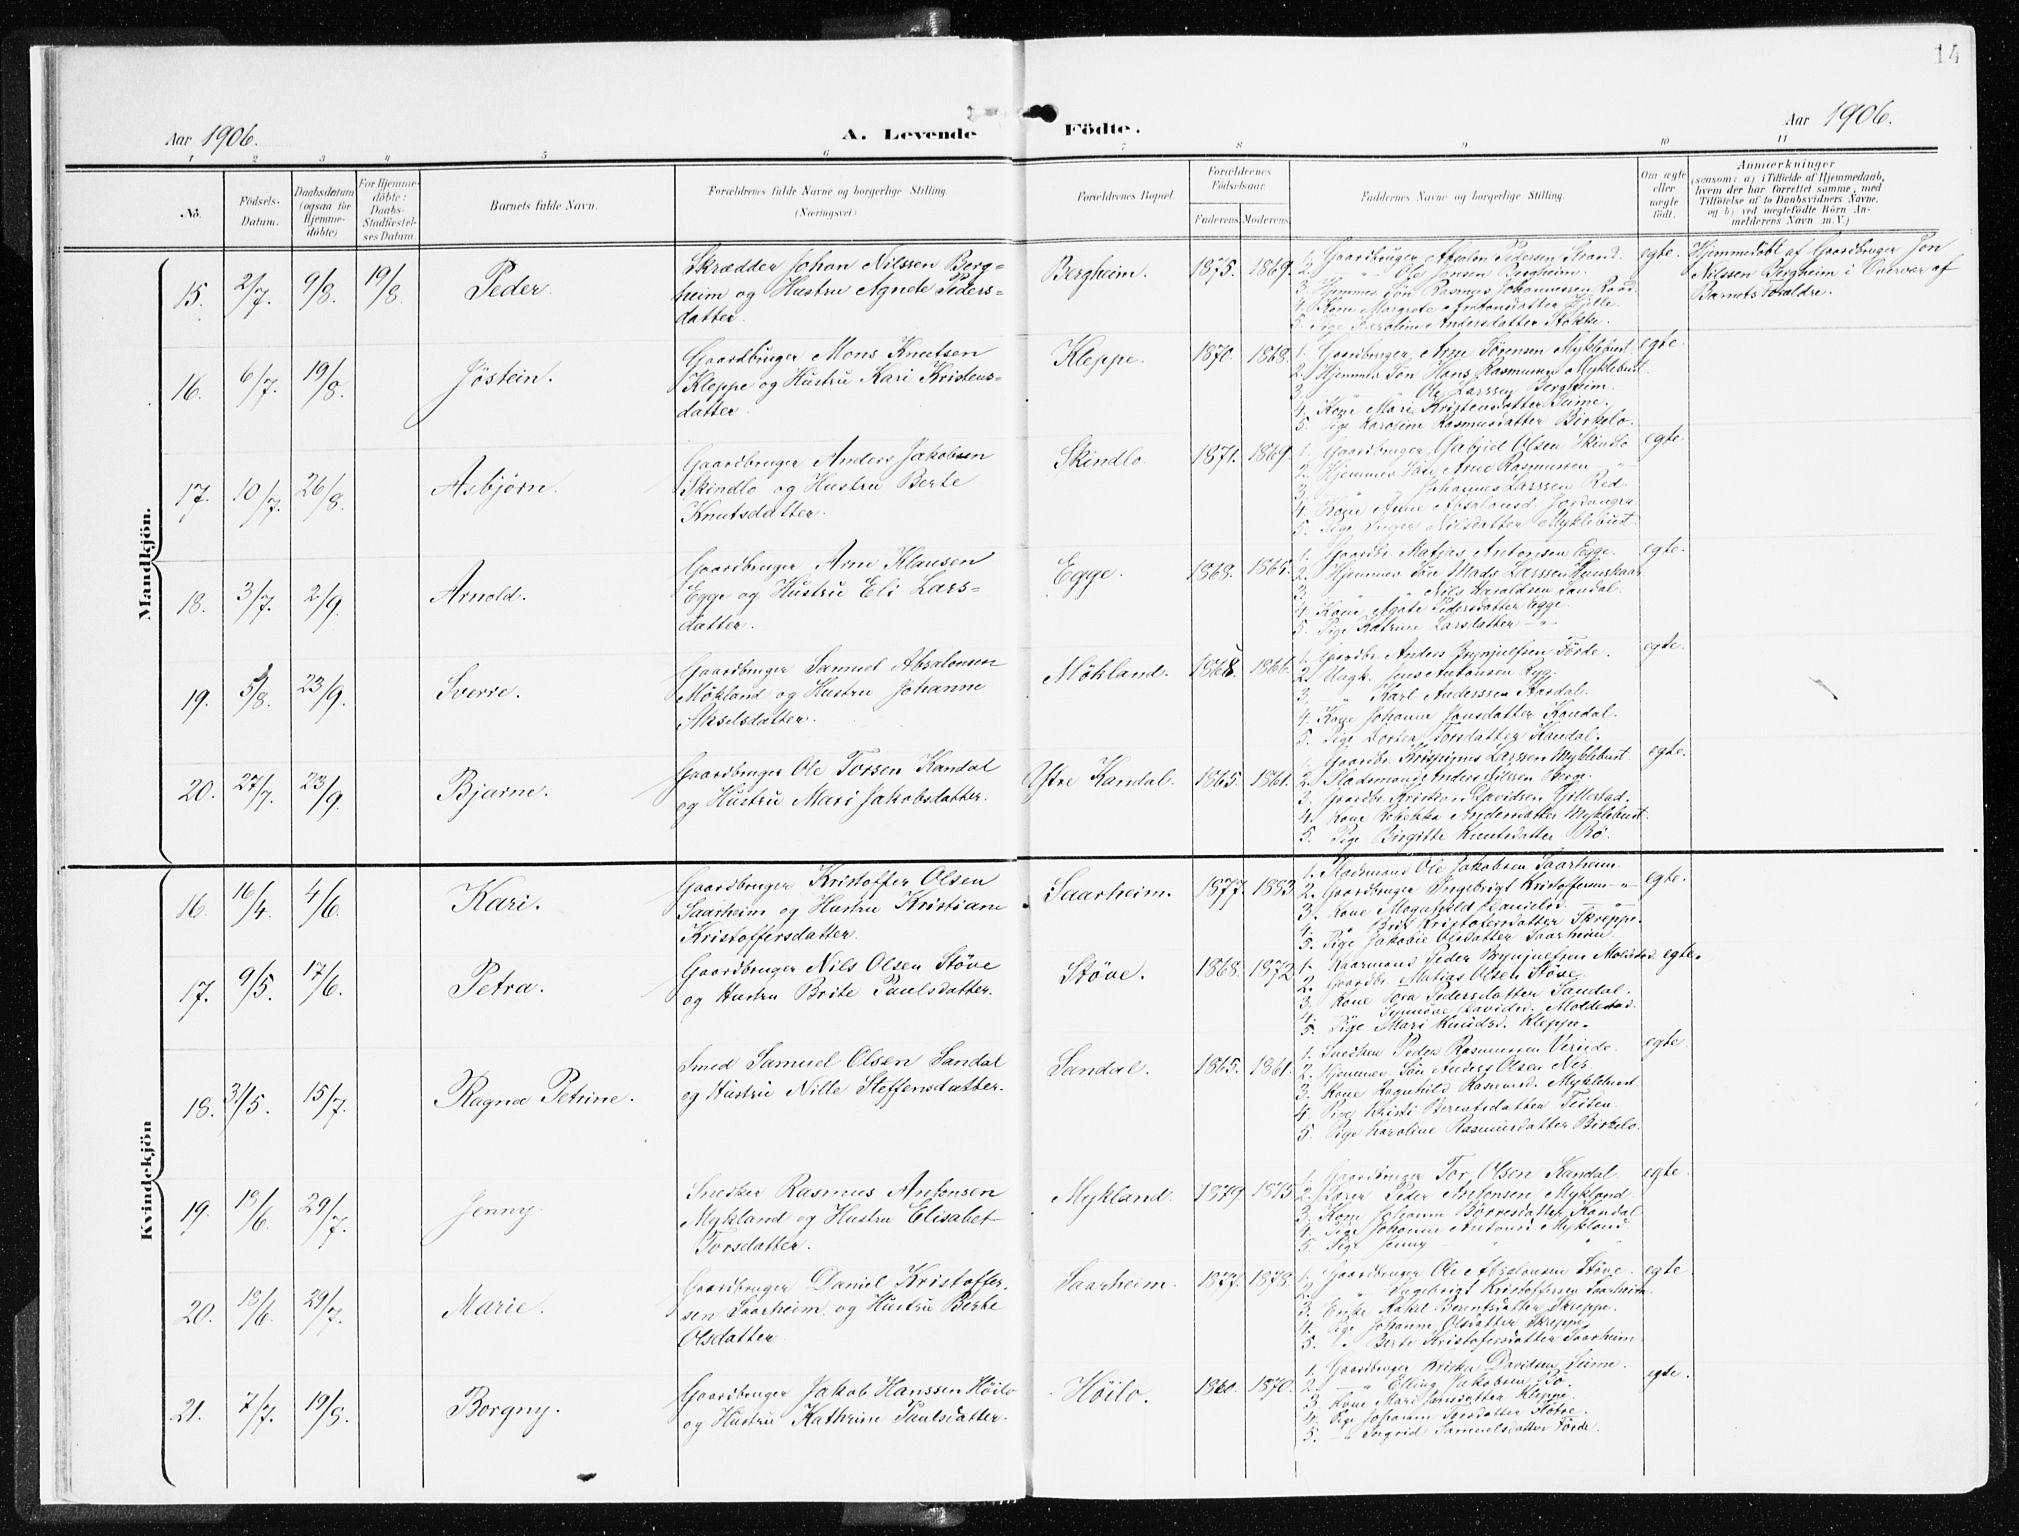 14
Aar 1906.
A. Levende Födte.
Aar 1906.
1 2 3 4 5 6 7 8 9 10 11
No.
Födsels-Datum.
Daabsdatum (ogsaa for Hjemme-döbte)
For Hjemme-döbte: Daabs-Stadfæstel-ses Datum
Barnets fulde Navn.
Forældrenes fulde Navne og borgerlige Stilling. (Næringsvei)
Forældrenes Bopæl.
Forældrenes Födselsaar.
Faderens Moderens
Faddernes Navne og borgerlige Stilling.
Om ægte eller uægte födt.
Anmærkninger
(saasom: a) i Tilfælde af Hjemmedaab, hvem der har forrettet samme, med Tilföielse af to Daabsvidners Navne, og b) ved uægtefödte Börn An-melderens Navn m. V.)
Mandkjön.
15. 2/7. 9/8. 19/8. Peder.
Skrædder Johan Nilssen Berg=
heim og Hustru Agnete Peders=
datter.
Bergheim. 1875. 1869.
1. Gaardbruger Absalon Pedersen Strand.
2. " Ole Jonsen Bergheim.
3. Hjemmev. Søn Rasmus Johannessen
4. Kone Margrete Antonsdatter Hjelle.
5. Pige Karoline Andersdatter Stokke.
egte.
Hjemmedøbt af Gaardbruger Jon
Nilssen Bergheim i Overvær af
Barnets Forældre.
16. 6/7. 19/8. Jöstein.
Gaardbruger Mons Knutsen
Kleppe og Hustru Kari Kristens=
datter.
Kleppe. 1870. 1868.
1. Gaardbruger Arne Sørensen Myklebust
2. Hjemmev. Søn Hans Rasmussen Myklebust
3. " Ole Larssen Bergheim.
4. Kone Mari Kristensdatter Seime.
5. Pige Karoline Rasmusdatter Birkelo.
egte.
17. 10/7. 26/8. Asbjørn.
Gaardbruger Anders Jakobsen
Skindlo og Hustru Berte
Knutsdatter.
Skindlo 1871. 1869.
1. Gaardbruger Gabriel Olsen Skindlo
2. Hjemmev. Arne Rasmussen "
3. " Johannes Larssen Red.
4. Kone Anne Absalonsd. Jordanger
5. Pige Inger Nilsdatter Myklebust.
egte.
18. 3/7. 2/9. Arnold.
Gaardbruger Arne Klausen
Egge og Hustru Eli Lars=
datter.
Egge. 1868.
1. Gaardbr. Matias Antonsen Egge.
2. Hjemmev. Søn Mads Larssen
3. " Nils Haraldsen Sandal.
4. Kone Agate Pedersdatter Egge.
5. Pige Katrine Larsdatter "
egte.
19. 5/8. 23/9. Sverre.
Gaardbruger Samuel Absalonsen
Mökland og Hustru Johanne
Akselsdatter.
Mökland. 1868. 1866.
1. Gaardbr. Anders Brynjulfsen Förde.
2. Ungk. Jens Antonsen Ryg.
3. " Karl Anderssen Aardal.
4. Kone Johanne Jonsdatter Kandal.
5. Pige Dortea Torsdatter Kandal.
egte.
20. 27/7. 23/9. Bjarne.
Gaardbruger Ole Torsen Kandal
og Hustru Mari Jakobsdatter.
Ytre Kandal. 1865. 1861.
1. Gaardbr. Larssen Myklebust
2. Pladsmand Anders Nilssen Berge.
3. Gaardbr. Kristian Davidsen Gillestad.
4. Kone Rebekka Andersdatter Myklebust.
5. Pige Birgitte Knutsdatter Bö.
egte.
Kvindekjön
16. 16/4. 4/6. Kari.
Gaardbruger Kristoffer Olsen
Saarheim og Hustru Kristiane
Kristoffersdatter.
Saarheim. 1877. 1883
1. Pladsmand Ole Jakobsen Saarheim.
2. Gaardbruger Ingebrigt Kristoffersen "
3. Kone Magnhild Danielsd. "
4. " Brit Kristofersdatter Skreppe.
5. Pige Jakobie Olsdatter Saarheim.
egte.
17. 9/5. 17/6. Petra.
Gaardbruger Nils Olsen Støve
og Hustru Brite Paulsdatter.
Støve. 1868. 1872.
1. Kaarmand Peder Brynjulfsen Molestad
2. Gaardbr. Matias Olsen Støve
3. Kone Tora Pedersdatter Sandal.
4. " Synnöve Davidsd. Moldestad.
5. Pige Mari Knudsd. Kleppe.
egte.
18. 31/5. 15/7. Ragna Petrine.
Smed Samuel Olsen Sandal
og Hustru Nille Steffensdatter.
Sandal. 1865. 1861.
1. Snedker Peder Rasmussen
2. Hjemmev. Søn Anders Olsen Nes
3. Kone Ragnhild Rasmusd. Myklebust
4. Pige Kristi Berentsdatter Teiten.
5. Pige Karoline Rasmusdatter Birkelo.
egte
19. 13/6. 29/7. Jenny.
Snedker Rasmus Antonsen
Mykland og Hustru Elisabet
Torsdatter.
Mykland. 1879. 1875.
1. Gaardbruger Tor Olsen Kandal.
2. Lærer Peder Antonsen Mykland.
3. Kone Johanne Børresdatter Kandal
4. Pige Johanne Antonsd. Mykland.
5. Pige Jenny " "
egte.
20. 13/6. 29/7. Marie.
Gaardbruger Daniel Kristoffer-
sen Saarheim og Hustru Berte
Olsdatter.
Saarheim. 1877. 1878.
1. Gaardbruger Ole Absalonsen Støve.
2. " Ingebrigt Kristoffersen Saarheim.
3. Enke Rakel Berentsdatter Skreppe.
4. Pige Johanne Olsdatter Skreppe
5. " Berte Kristofersdatter Saarheim
egte.
21. 7/7. 19/8. Borgny.
Gaardbruger Jakob Hanssen Höilo
og Hustru Kathrine Paulsdatter.
Höilo. 1860. 1870.
1. Gaardbruger Davidsen Seime.
2. " Elling Jakobsen Bø.
3. Kone Mari Jansdatter Kleppe.
4. Pige Johanne Larsdatter Støve.
5. " Ingrid Samuelsdatter Förde.
egte.